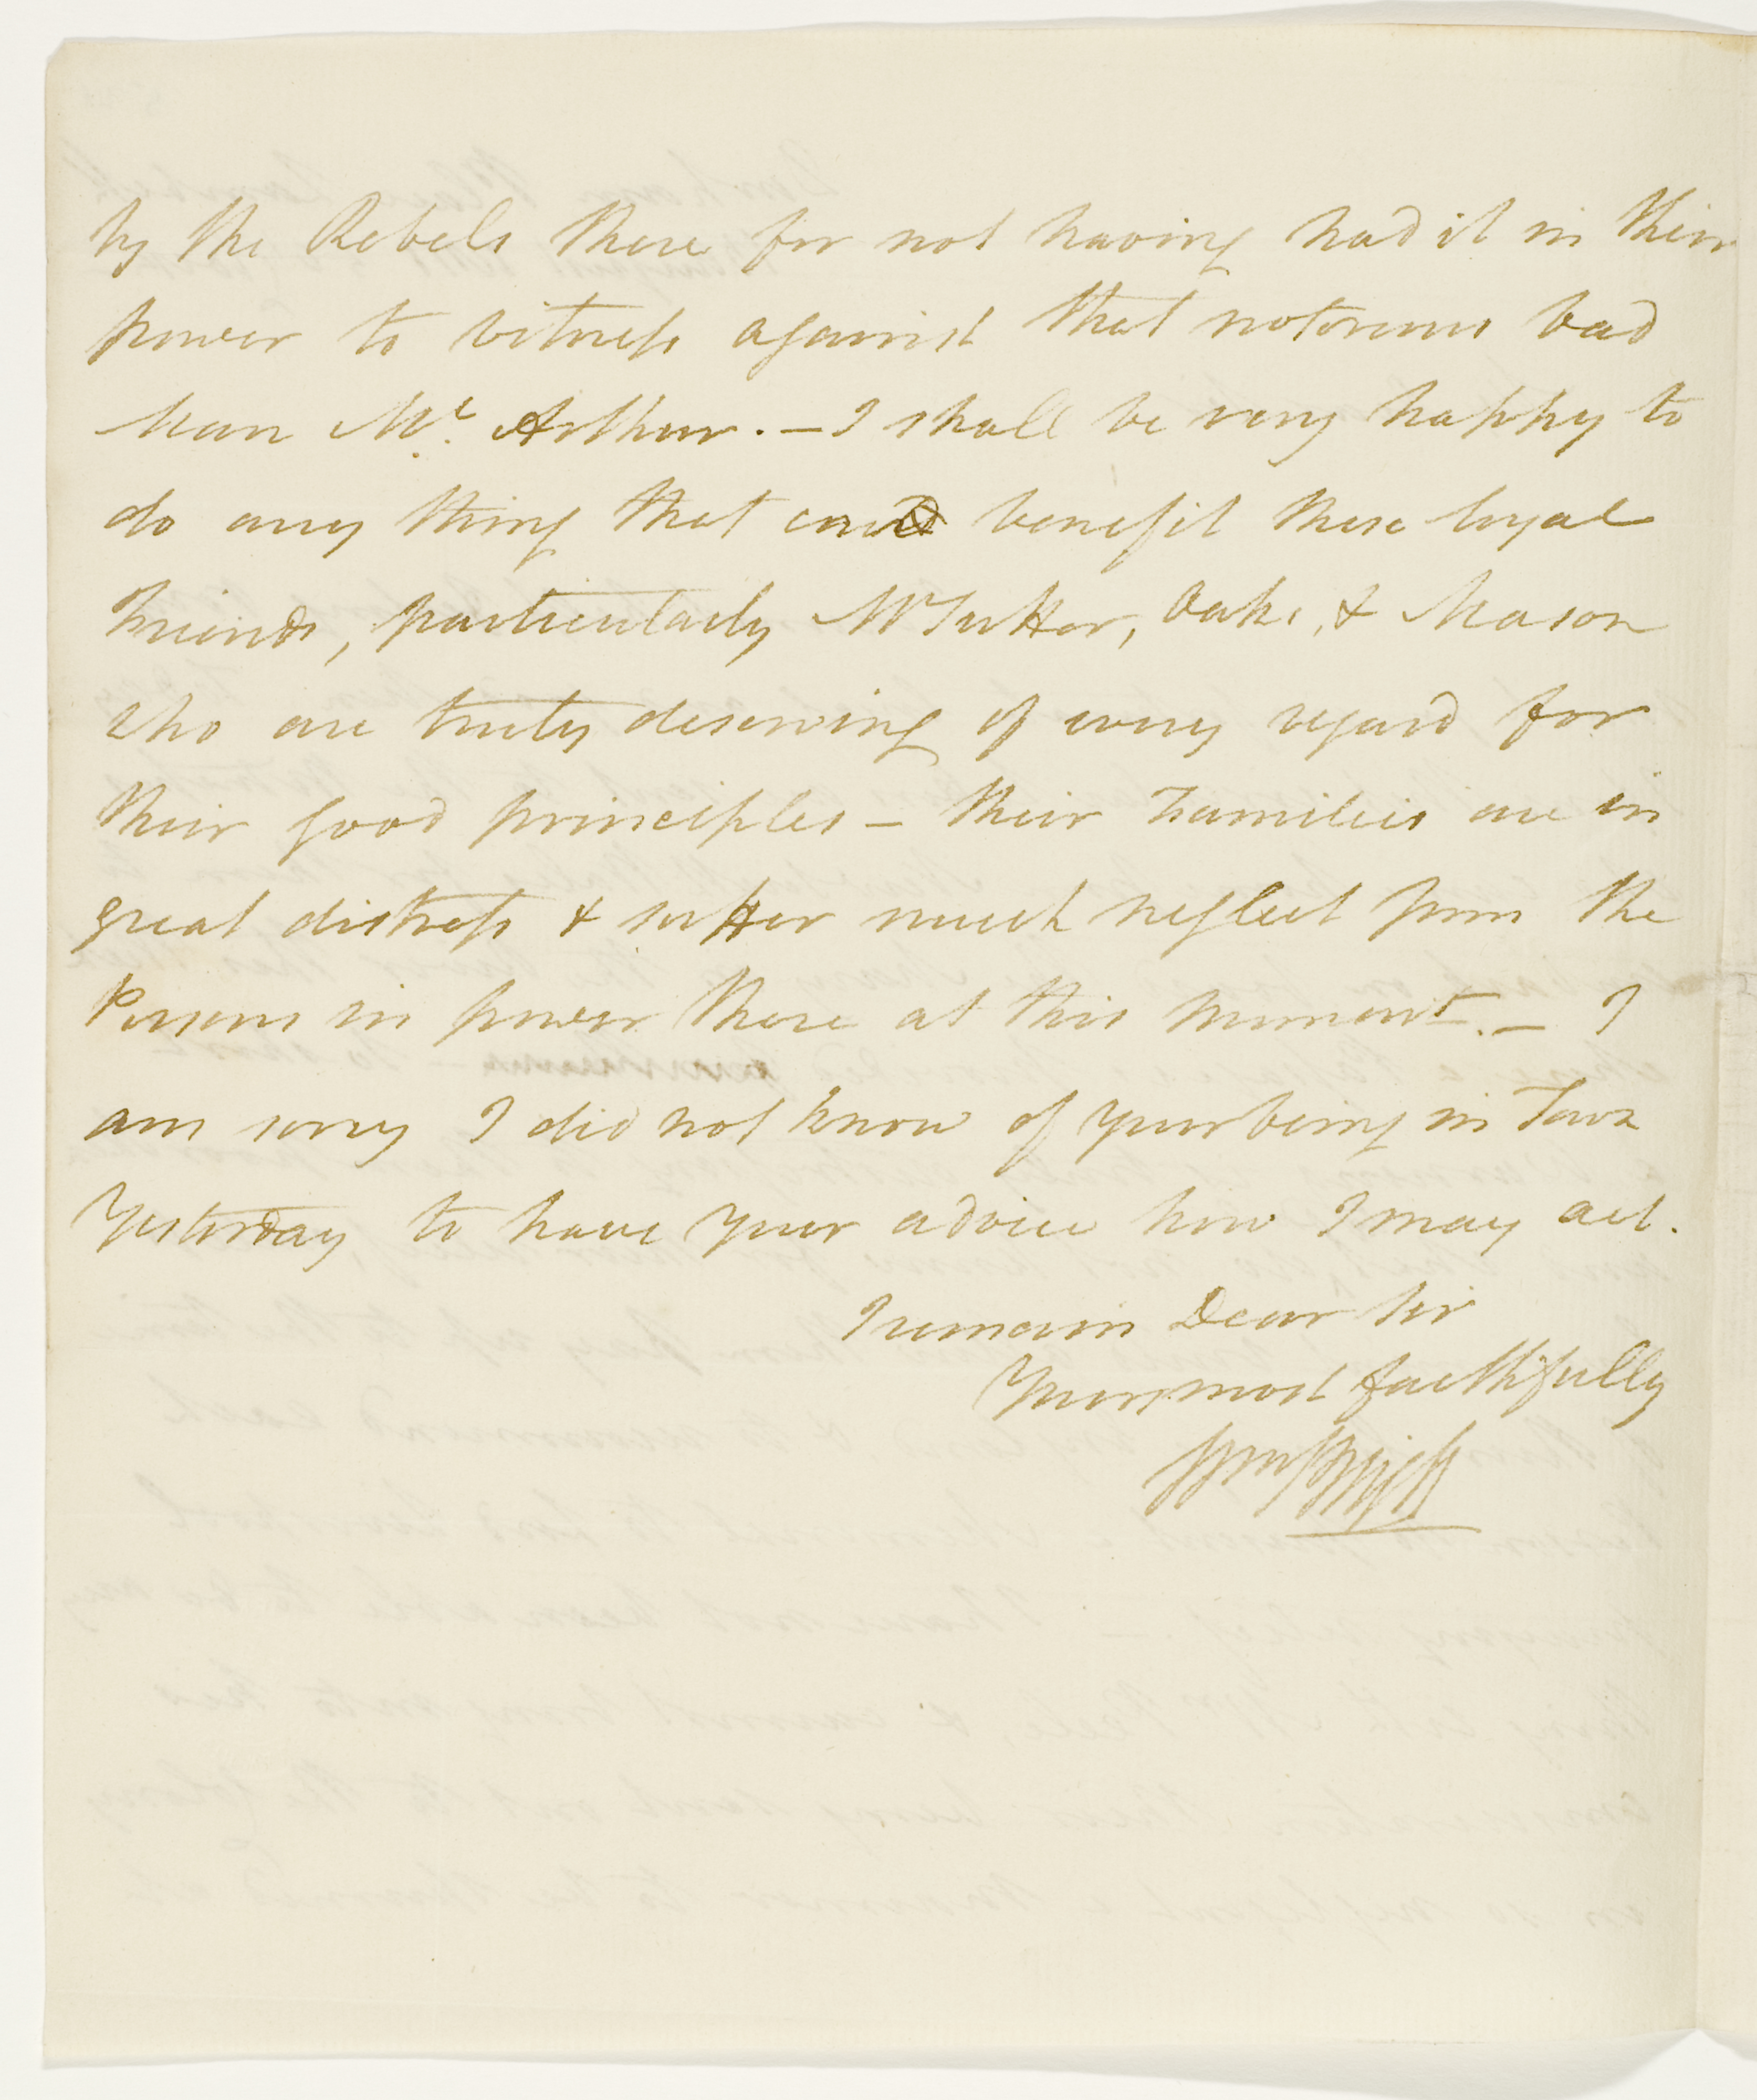 by the Rebels there for not having had it in their
power to witness against that notorious bad
Man Mc. Arthur. – I shall be very happy to
do any thing that coud benefit these loyal
Friends, particularly Mr Sutter, Oaks, & Mason
who are truly deserving of every regard for
their good principles – their Families are in
great distress & suffer much neglect from the
Persons in power there at this moment. – I
am sorry I did not know of your being in Town
Yesterday to have your advice how I may act.
I remain Dear Sir
Yours most faithfully
Wm Bligh